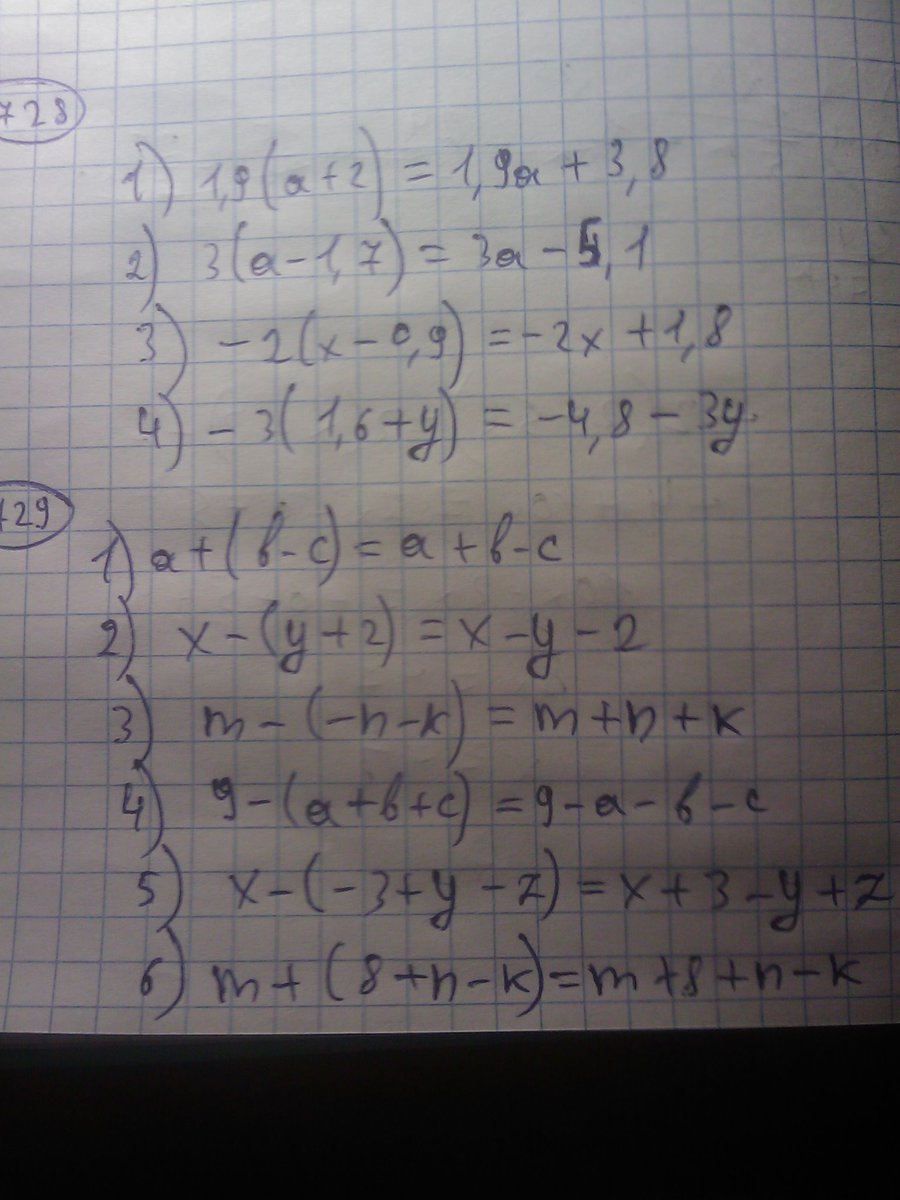 728
1) 1,9(a+2) = 1,9a + 3,8
2) 3(a-1,7) = 3a - 5,1
3) -2(x-0,9) = -2x + 1,8
4) -3(1,6+y) = -4,8 - 3y.
729
1) a+(в-c) = a+в-c
2) x-(y+2) = x-y-2
3) m-(-n-k) = m+n+k
4) 9-(a+в+c) = 9-a-в-c
5) x-(-3+y-z) = x+3-y+z
6) m+(8+n-k) = m+8+n-k